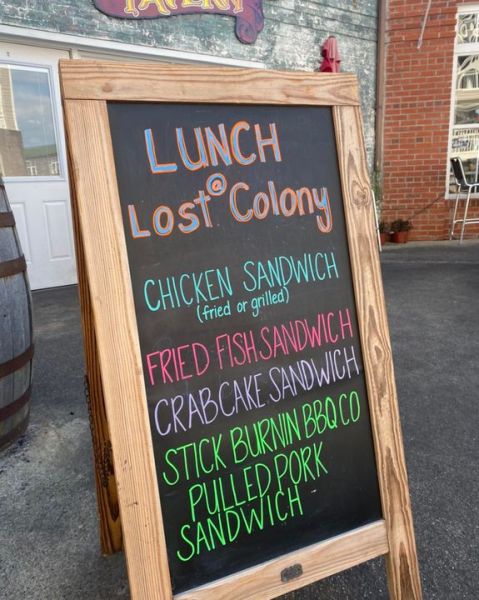 TAVERN
LUNCH
@
LOST COLONY
CHICKEN SANDWICH
(fried or grilled)
FRIED FISH SANDWICH
CRABCAKE SANDWICH
STICK BURNIN BBQ CO
PULLED PORK
SANDWICH